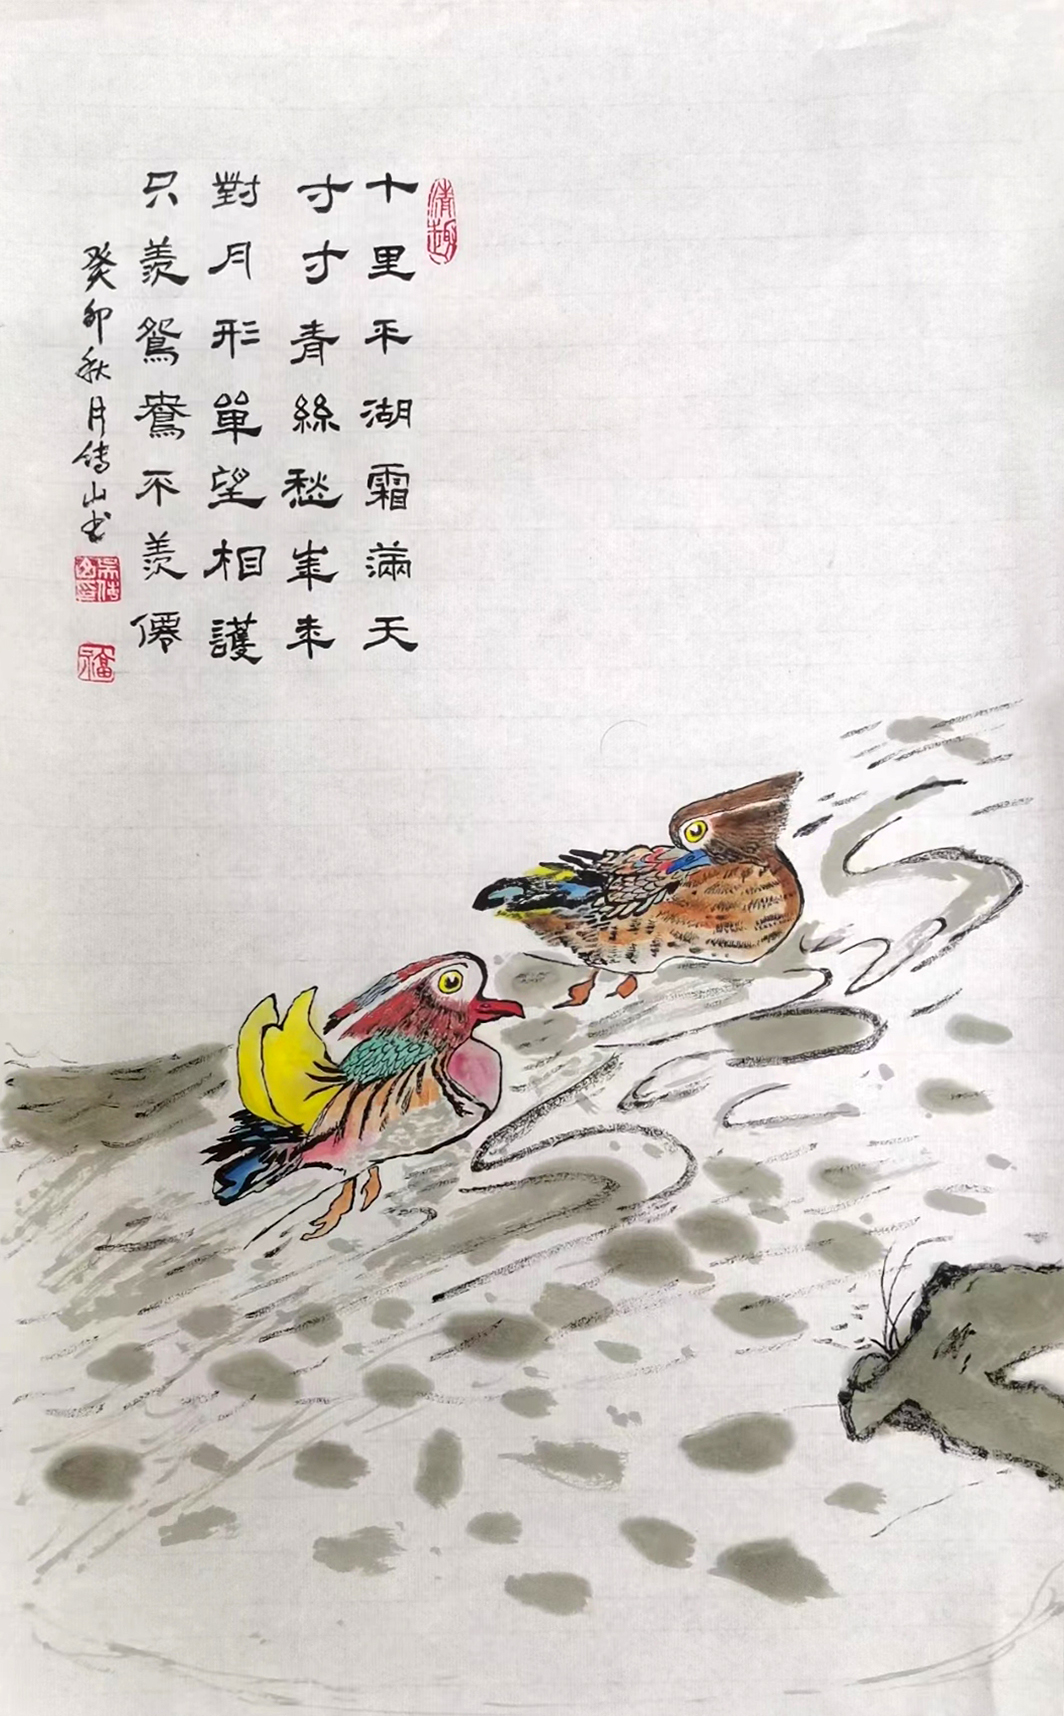 情趣
十里平湖霜滿天
寸寸青絲愁年来
對月形單望相護
只羨鴛鴦不羨僊
癸卯秋月傳山书